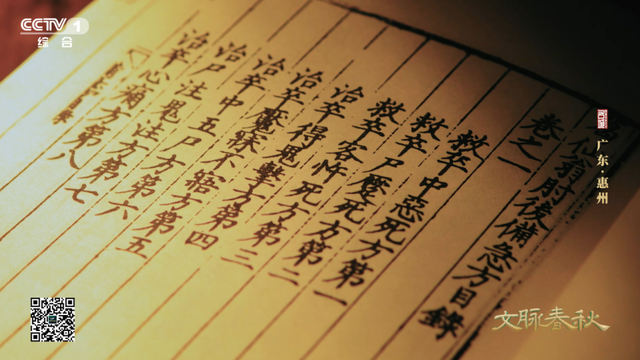 CCTV 1
综合
仙翁肘後備急方目錄
卷之一
救卒中惡死方第一
救卒尸死方第二
救卒客忤死方第三
治卒得鬼擊方第四
治卒魘寐不寤方第五
治卒中五尸方第六
治尸注鬼注方第七
治卒心痛方第八
广东·惠州
文脉春秋